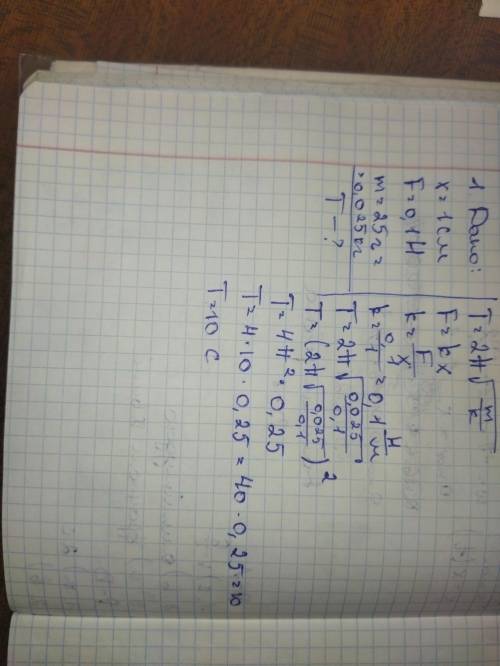 1 Дано:
x = 1 см
F = 0,1 Н
m = 25 г =
= 0,025 кг
T – ?
T = 2π√(m/k)
F = kx
k = F/x
k = 0,1/1 = 0,1 Н/м
T = 2π√(0,025/0,1)
T = (2π√(0,025/0,1))²
T = 4π² · 0,25
T = 4 · 10 · 0,25 = 40 · 0,25 = 10
T = 10 с